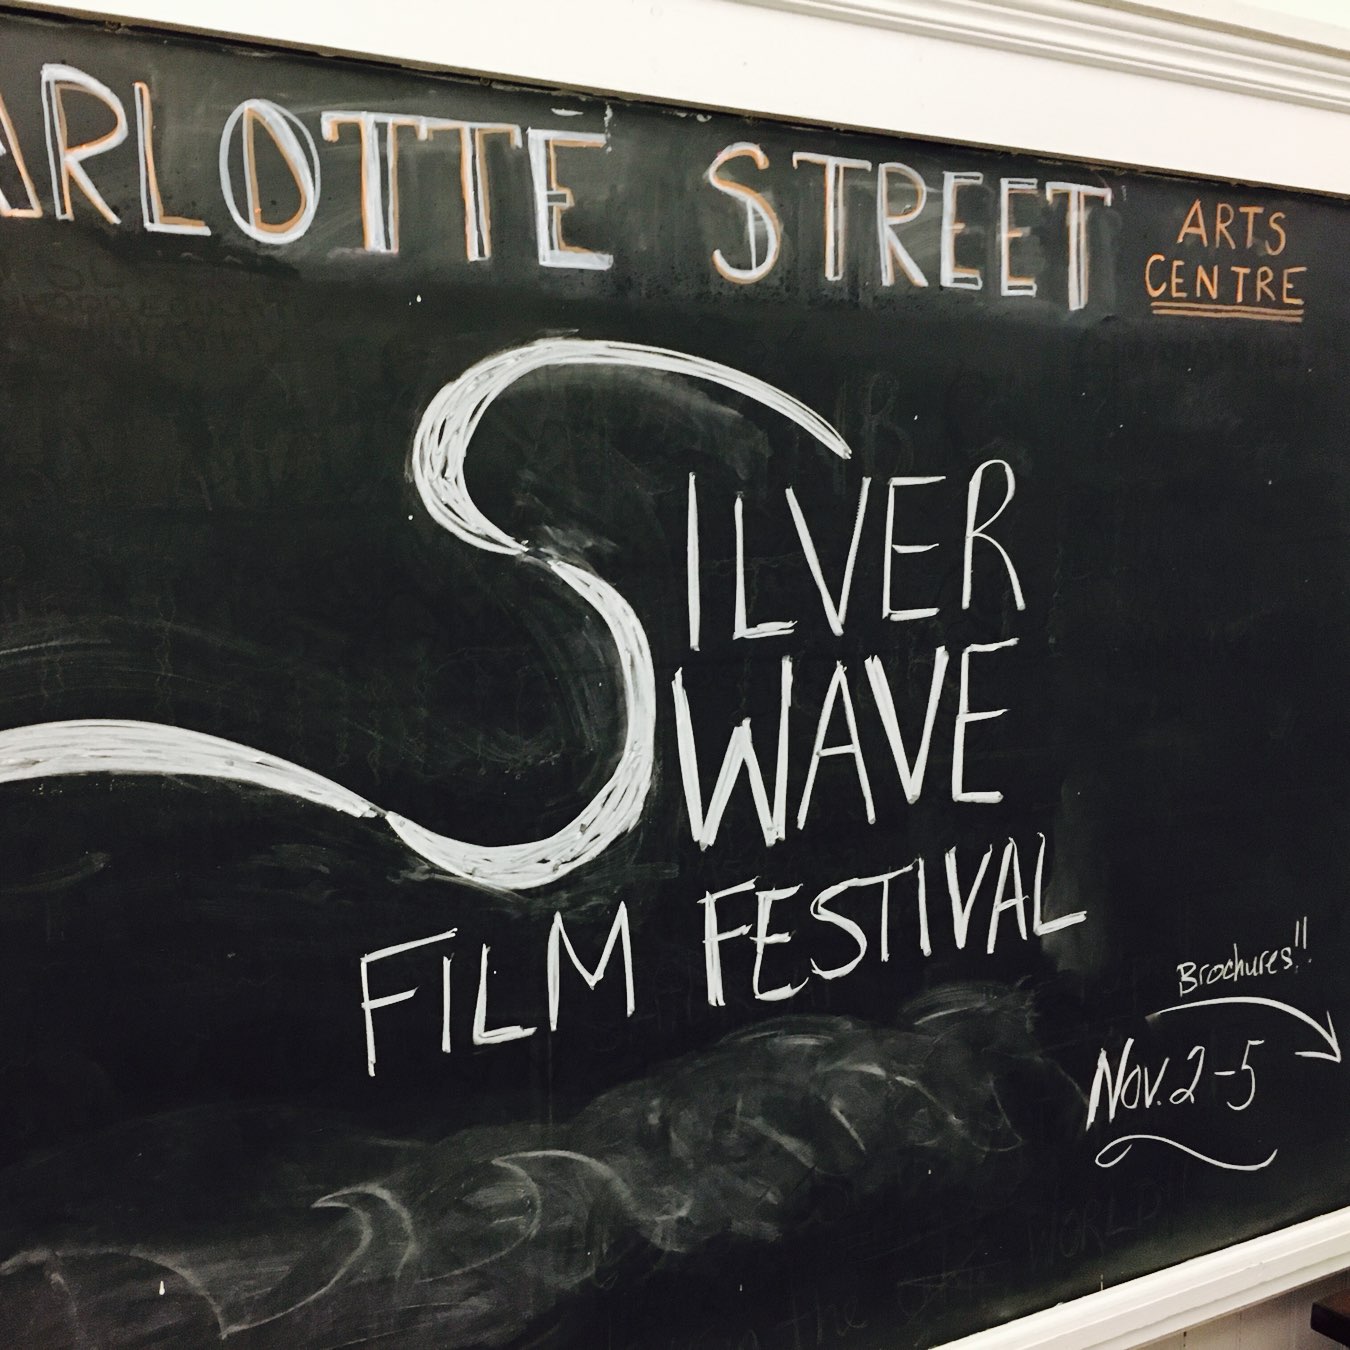 ARLOTTE STREET ARTS
CENTRE
SILVER
WAVE
FILM FESTIVAL
Brochures!!
Nov. 2-5